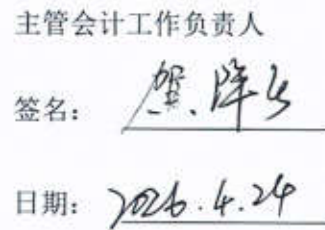 主管会计工作负责人
签名：贺
日期：2026.4.24